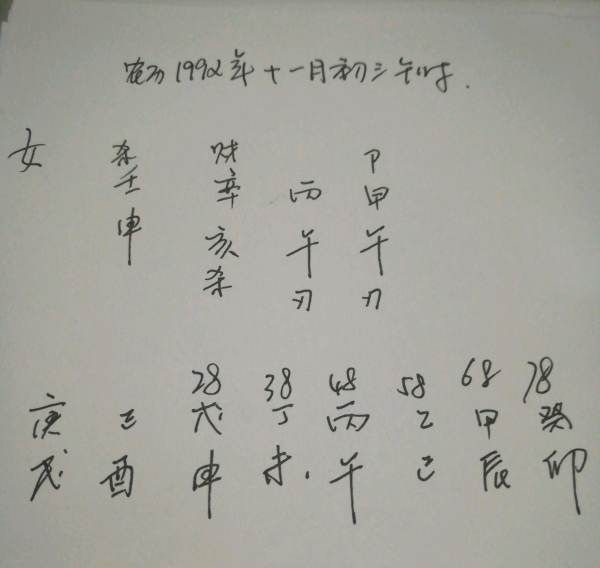 农历1992年十一月初三午时.
女 杀 财 P
壬 辛 丙 甲
申 亥 午 午
杀 刃 刃
28 38 48 58 68 78
庚 己 戊 丁 丙 乙 甲 癸
戌 酉 申 未. 午 巳 辰 卯